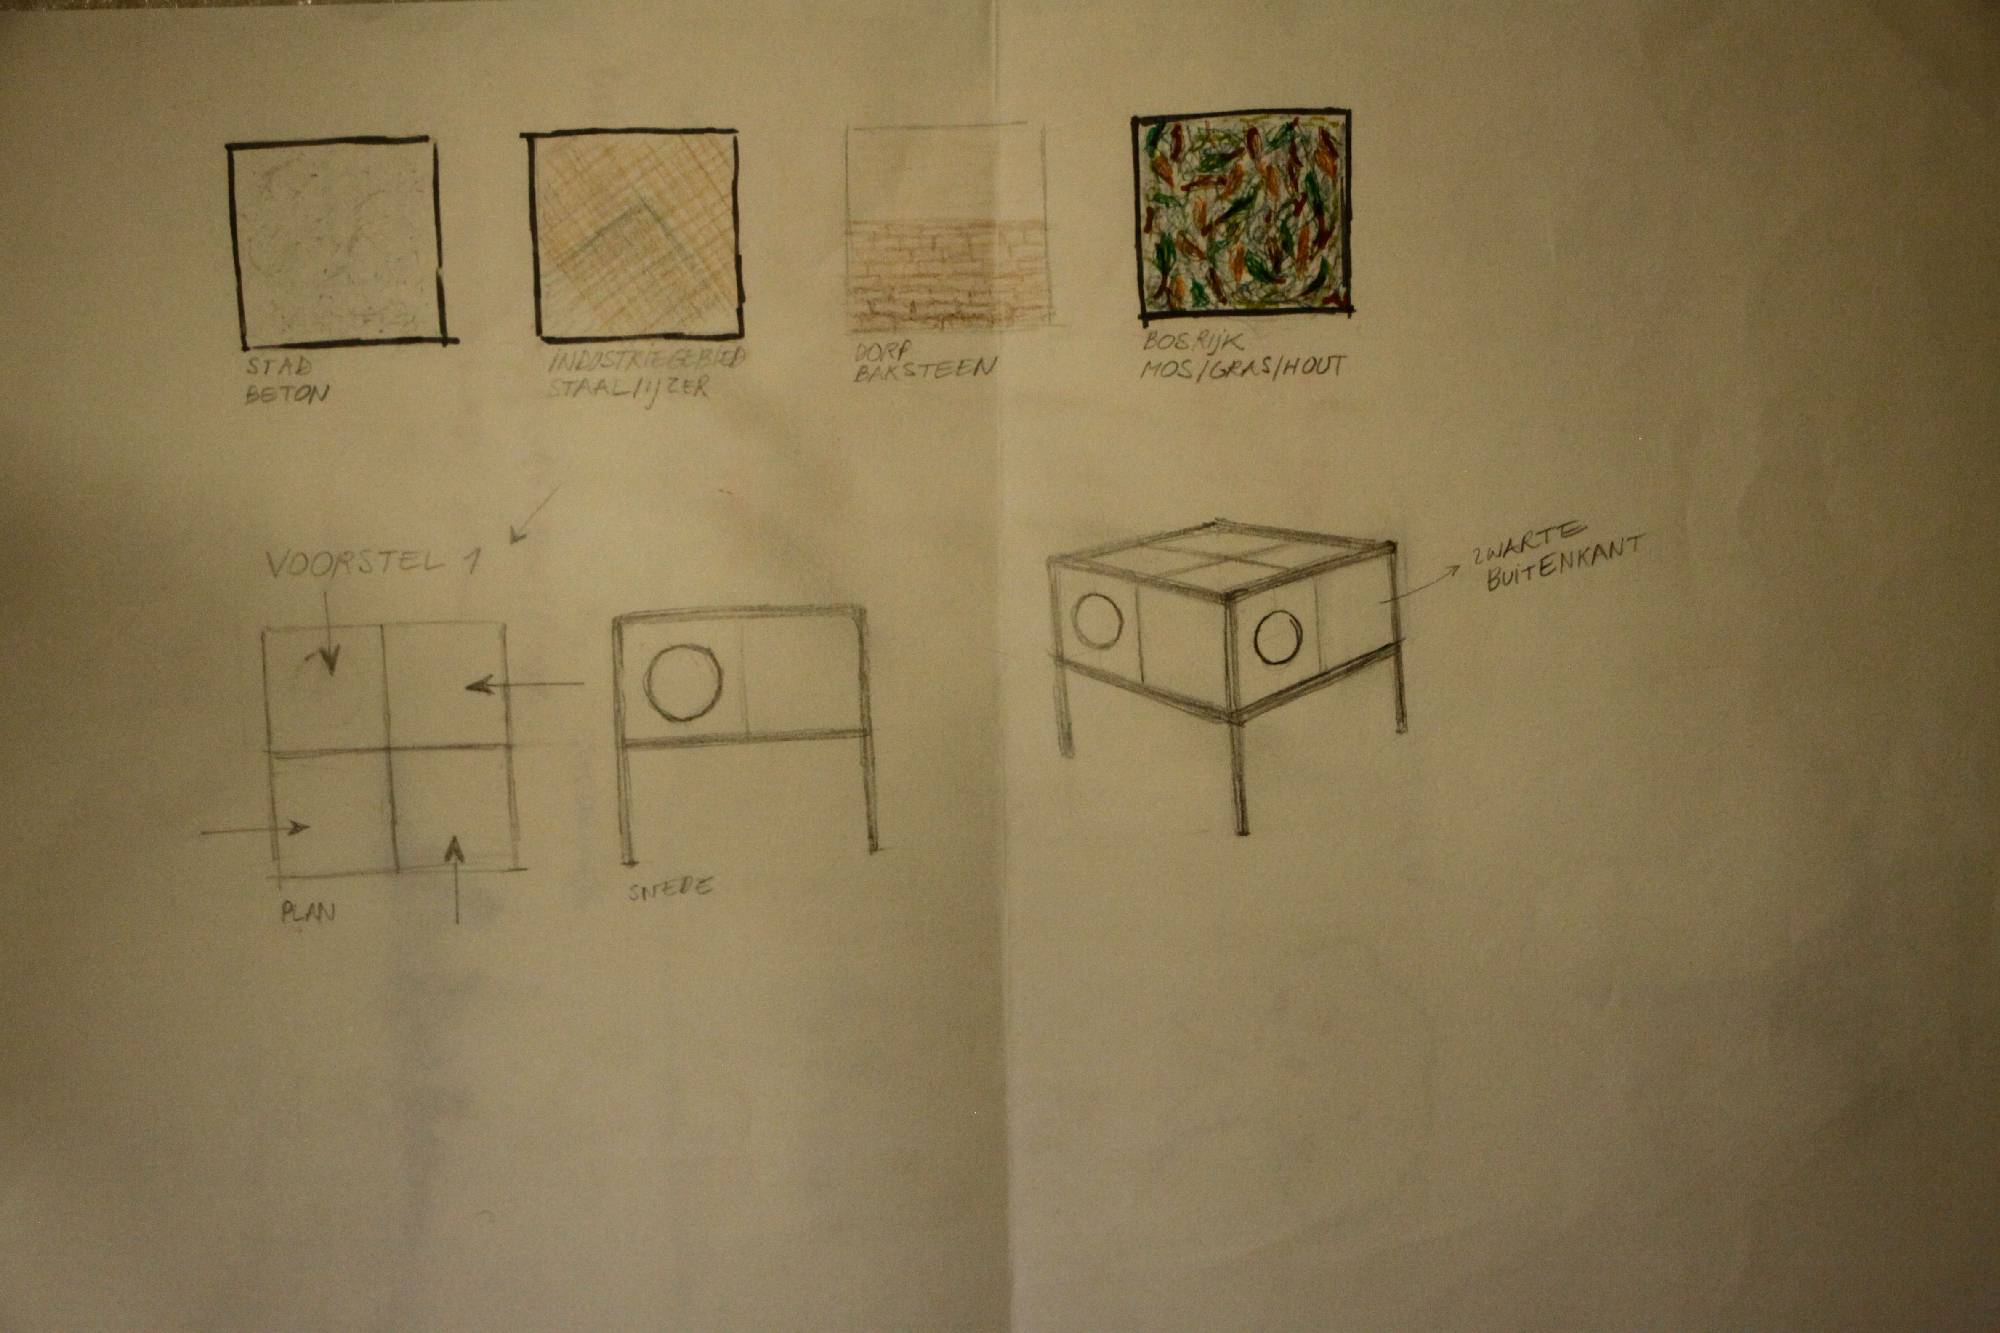 STAD
BETON
INDUSTRIEGEBIED
STAAL/IJZER
DORP
BAKSTEEN
BOSRIJK
MOS/GRAS/HOUT
VOORSTEL 1
ZWARTE
BUITENKANT
PLAN
SNEDE